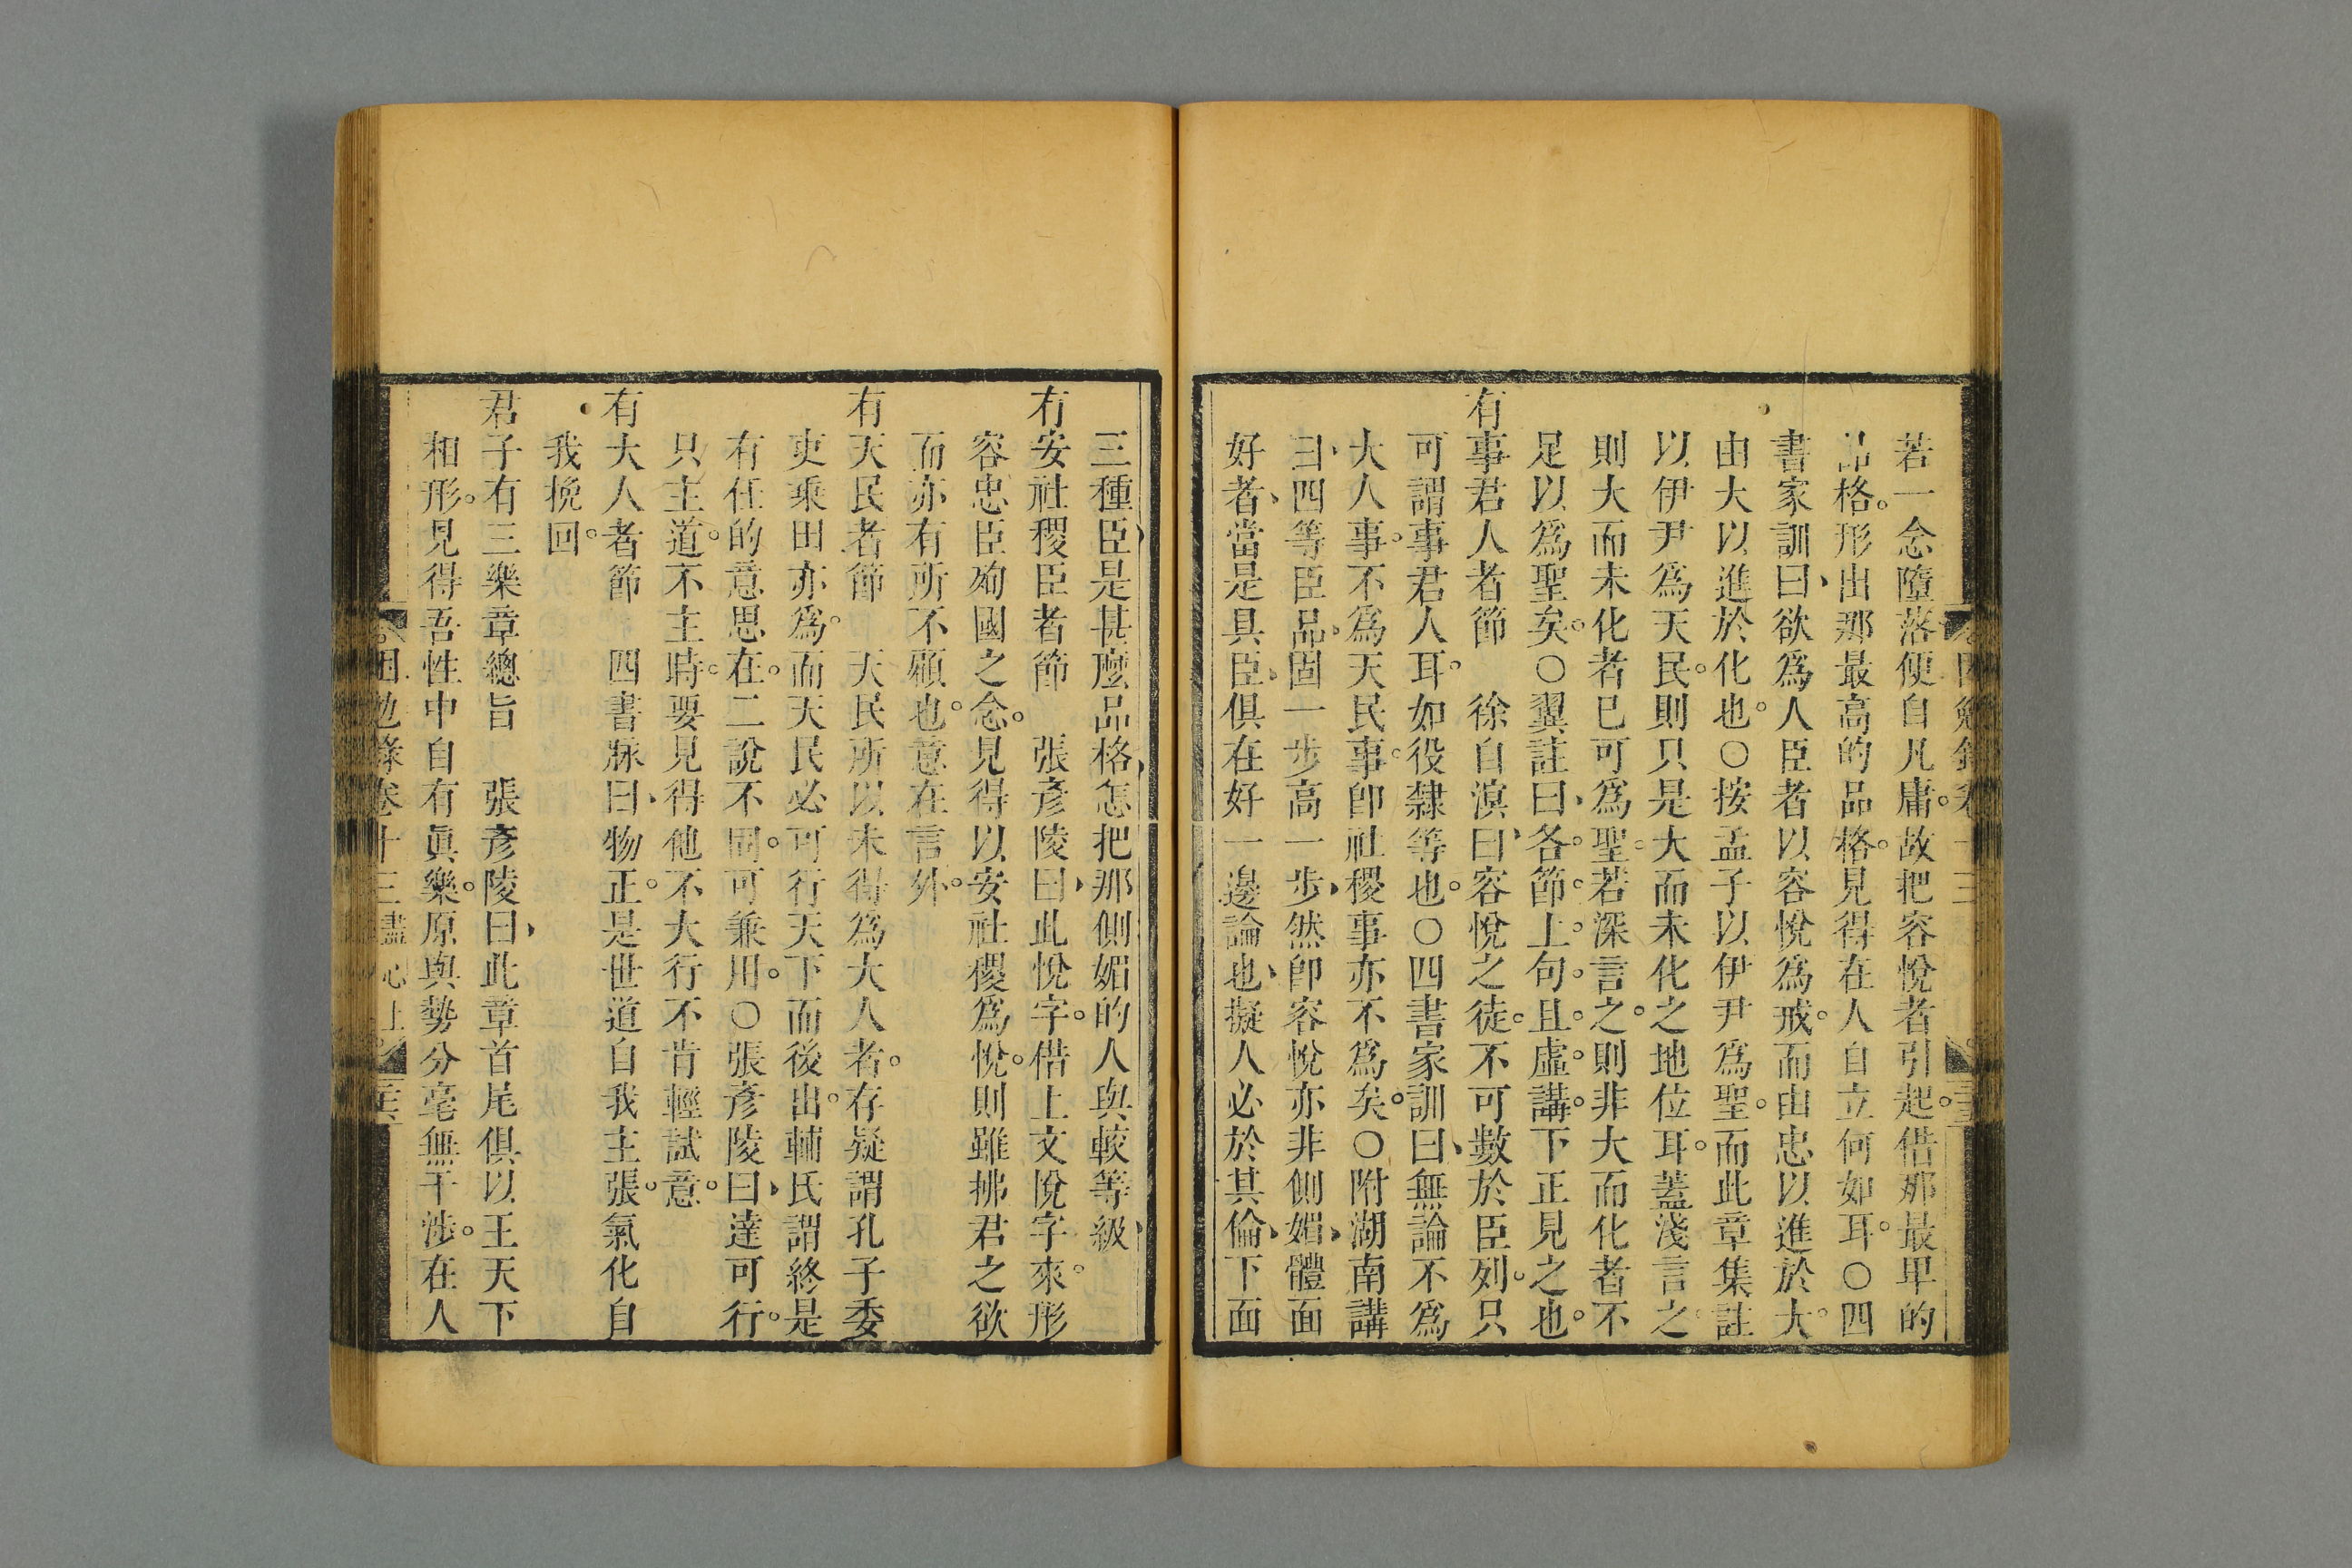 若一念墮落便自凡庸。故把容悅者引起。借那最卑的
品格。形出那最高的品格。見得在人自立何如耳。○四
書家訓曰、欲爲人臣者以容悅爲戒。而由忠以進於大。
由大以進於化也。○按孟子以伊尹爲聖。而此章集註
以伊尹爲天民。則只是大而未化之地位耳。蓋淺言之。
則大而未化者已可爲聖。若深言之。則非大而化者不
足以爲聖矣。○翼註曰、各。節。上。句。且。虛。講。下正見之也。
有事君人者節　徐自溟曰、容悅之徒。不可數於臣列。只
可謂事君人耳。如役隸等也。○四書家訓曰、無論不爲
大人事。不爲天民事。卽社稷事亦不爲矣。○附湖南講
曰、四等臣品、固一步高一步、然卽容悅亦非側媚、體面
好者、當是具臣、俱在好一邊論也、擬人必於其倫、下面
三種臣、是甚麼品格、怎把那側媚的人與較等級、
有安社稷臣者節　張彥陵曰、此悅字。借上文悅字來。形
容忠臣殉國之念。見得以安社稷爲悅。則雖拂君之欲
而亦有所不顧也。意在言外。
有天民者節　天民所以未得爲大人者。存疑謂孔子委
吏乘田亦爲。而天民必可行天下而後出。輔氏謂終是
有任的意思在。二說不同。可兼用。○張彥陵曰、達可行。
只主道。不主時。要見得他不大行不肯輕試意。
有大人者節　四書脉曰、物正。是世道自我主張。氣化自
我挽回。
君子有三樂章總旨　張彥陵曰、此章首尾俱以王天下
相形。見得吾性中自有眞樂。原與勢分毫無干涉。在人
困勉錄卷十三 盡心上